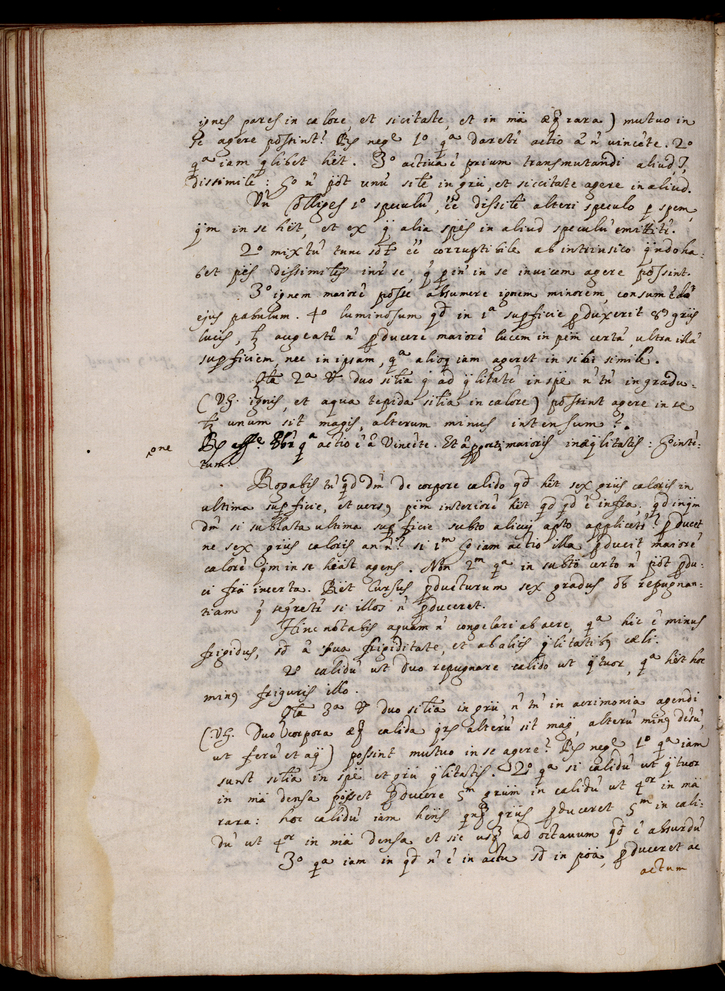 ignes pares in calore et siccitate, et in mã æq̃ rara) mutuo in
se agere possint? R̃s neg.e 1o q.a daretr̃ actio à ñ vincẽte. 2o
q.a iam q̃libet hẽt. 3o activũ ẽ prium transmutandi aliud
dissimile: g.o ñ põt unũ sile in grũ, et siccitate agere in aliud.
Un̄ Colliges 1o speculũ, ẽẽ dissile alteri speculo p spem,
qm̃ in se hẽt, et ex q̃ alia spẽs in aliud speculũ emittitr̃.
2o mixtũ tunc sõt ẽẽ corruptibile ab intrinsico qñdo ha:
bet ptẽs dissimiles intr̃ se, q̃ pin̄ in se invicem agere possint.
3o ignem maiorẽ posse absumere ignem minorem, consumẽdo
ejus pabulum. 4o luminosum qd̃ in 1.a supficie pduxerit 8 grũs
lucis, lz augeatr̃ ñ pducere maiorẽ lucem in ptem certã ultra illã
supficiem nec in ipsam, q.a alioq̃ iam ageret in sibi simile.
Qta 2a Vr̃ duo silia q ad q̃litatẽ in spẽ ñ tñ in gradu
(V.G. ignis, et aqua tepida silia in calore) possint agere in se
lz unum sit magis, alterum minus intensum?
R̃s aff.e q.a actio ẽ à vincẽte. Et à pporti. maioris inæq̃litatis: g.o inte:
pone
tum.
Rogabis tñ qd dr̃m de corpore calido qd̃ hẽt sex grũs caloris in
ultima supficie, et versus ptem interiorẽ hẽt qd qd ẽ infra, qd inqm̃
dr̃m si sublata ultima supficie subto alicui apto applicetr̃? pducet
ne sex grũs caloris an ñ? si 1.m g.o iam actio illa pducit maiorẽ
calorẽ qm̃ in se hẽat agens. Non 2.m q.a in subto certo ñ põt pdu:
ci frã incerta. R̃et Cursus pducturum sex gradus ob repugnan:
tiam q̃ segretr̃ si illos ñ pduceret.
Hinc notabis aquam ñ congelari ab aere, q.a hic ẽ minus
frigidus, sd à sua frigiditate, et ab aliis q̃litatibus cæli.
2o calidũ ut duo repugnare calido ut q̃tuor, q.a hẽt hoc
minus frigoris illo.
Qta 3.a Vr̃ duo silia in grũ ñ tñ in acrimonia agendi
(V.G. Duo corpora æq̃ calida grs alterũ sit mag, alterũ minus dẽsũ,
ut ferũ et aq̃) possint mutuo in se agere? R̃s neg.e 1o q.a iam
sunt silia in spẽ et grũ q̃litatis. 2o q.a si calidũ ut q̃tuor
in mã densa posset pducere 5.m grũm in calidũ ut 4.or in mã
rara: hoc calidũ iam hẽns qnq̃ grũs pduceret 5.m in cali:
dũ ut 4.or in mã densa et sic usq ad octavum qd ẽ absurdũ
3o q.a iam in qd ñ ẽ in actu sd in põa, pduceret ac
actum